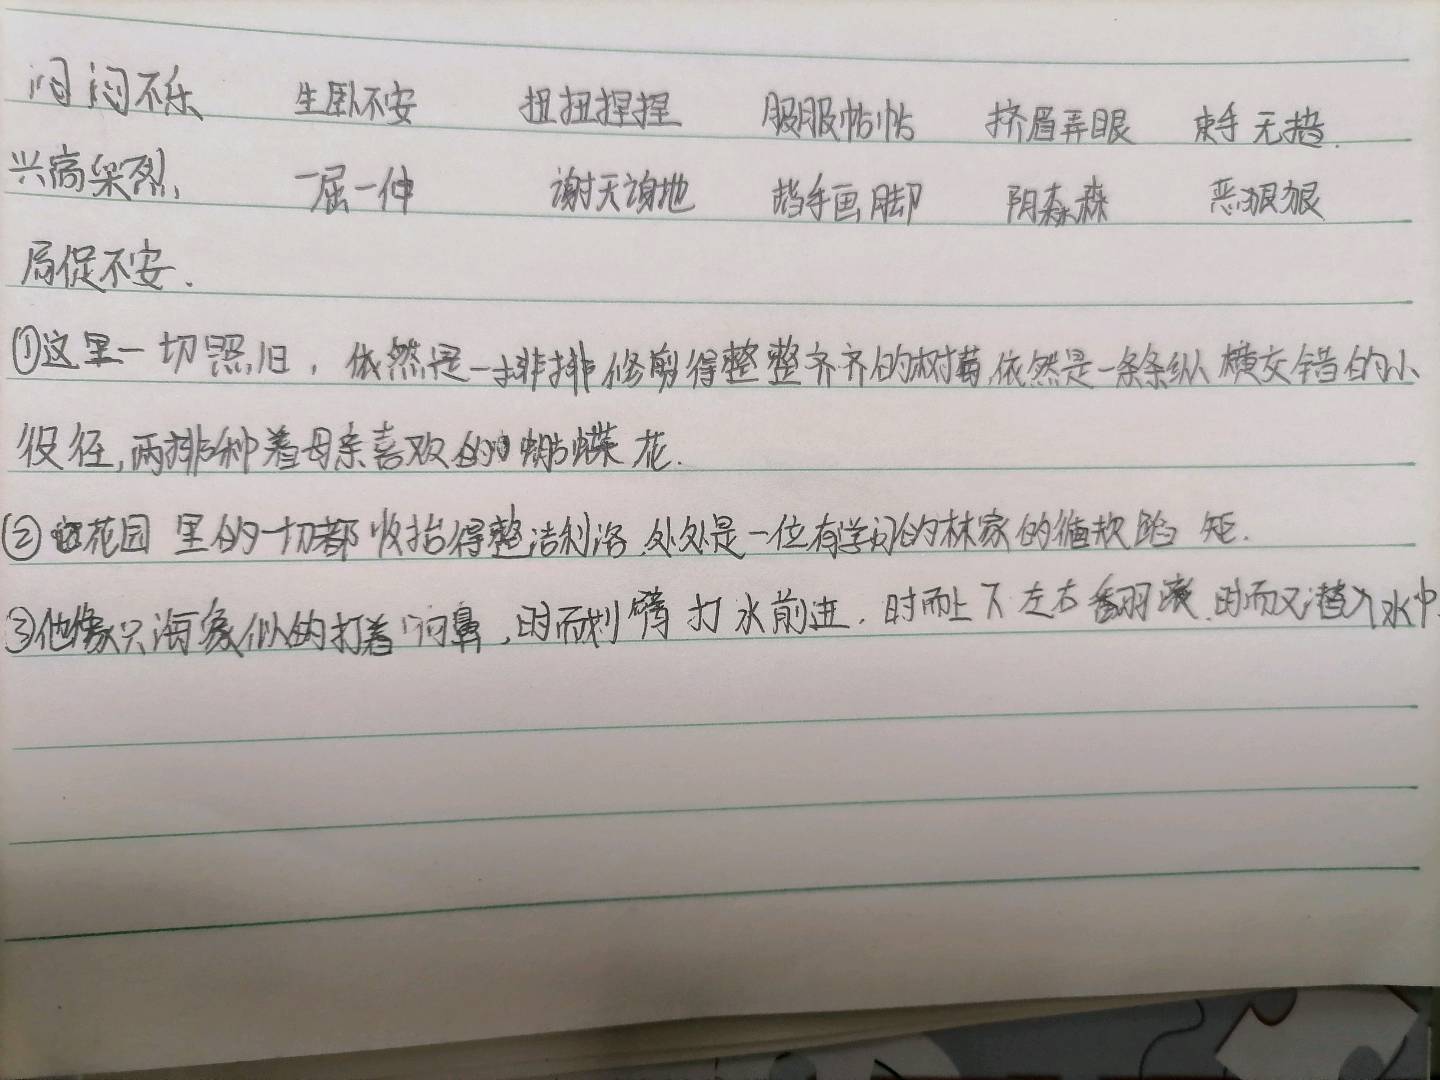 闷闷不乐 坐卧不安 扭扭捏捏 服服帖帖 挤眉弄眼 束手无措.
兴高采烈, 一屈一伸 谢天谢地 指手画脚 阴森森 恶狠狠
局促不安.
①这里一切照旧, 依然是一排排修剪得整整齐齐的树莓,依然是一条条纵横交错的小
径,两排种着母亲喜欢的蝴蝶花.
②花园里的一切都收拾得整洁利落,处处是一位有学问的林家的循规蹈矩.
③他像只海象似的打着响鼻,时而划臂打水前进.时而上下左右翻滚.时而又潜入水中.